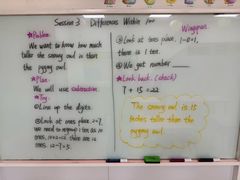 Session 3 Differences Within 100
★Problem.
We want to know how much
taller the snowy owl is than
the pygmy owl.
★Plan.
We will use subtraction.
★Try.
①Line up the digits.
②Look at ones place, 2<7,
we need to regroup 1 ten as 10
ones, 10+2=12 there are 12
ones. 12-7=5
③Look at tens place. 1-0=1,
there is 1 ten.
④We get number
★Look back. (check)
7 + 15 = 22
The snowy owl is 15
inches taller than the
pygmy owl.